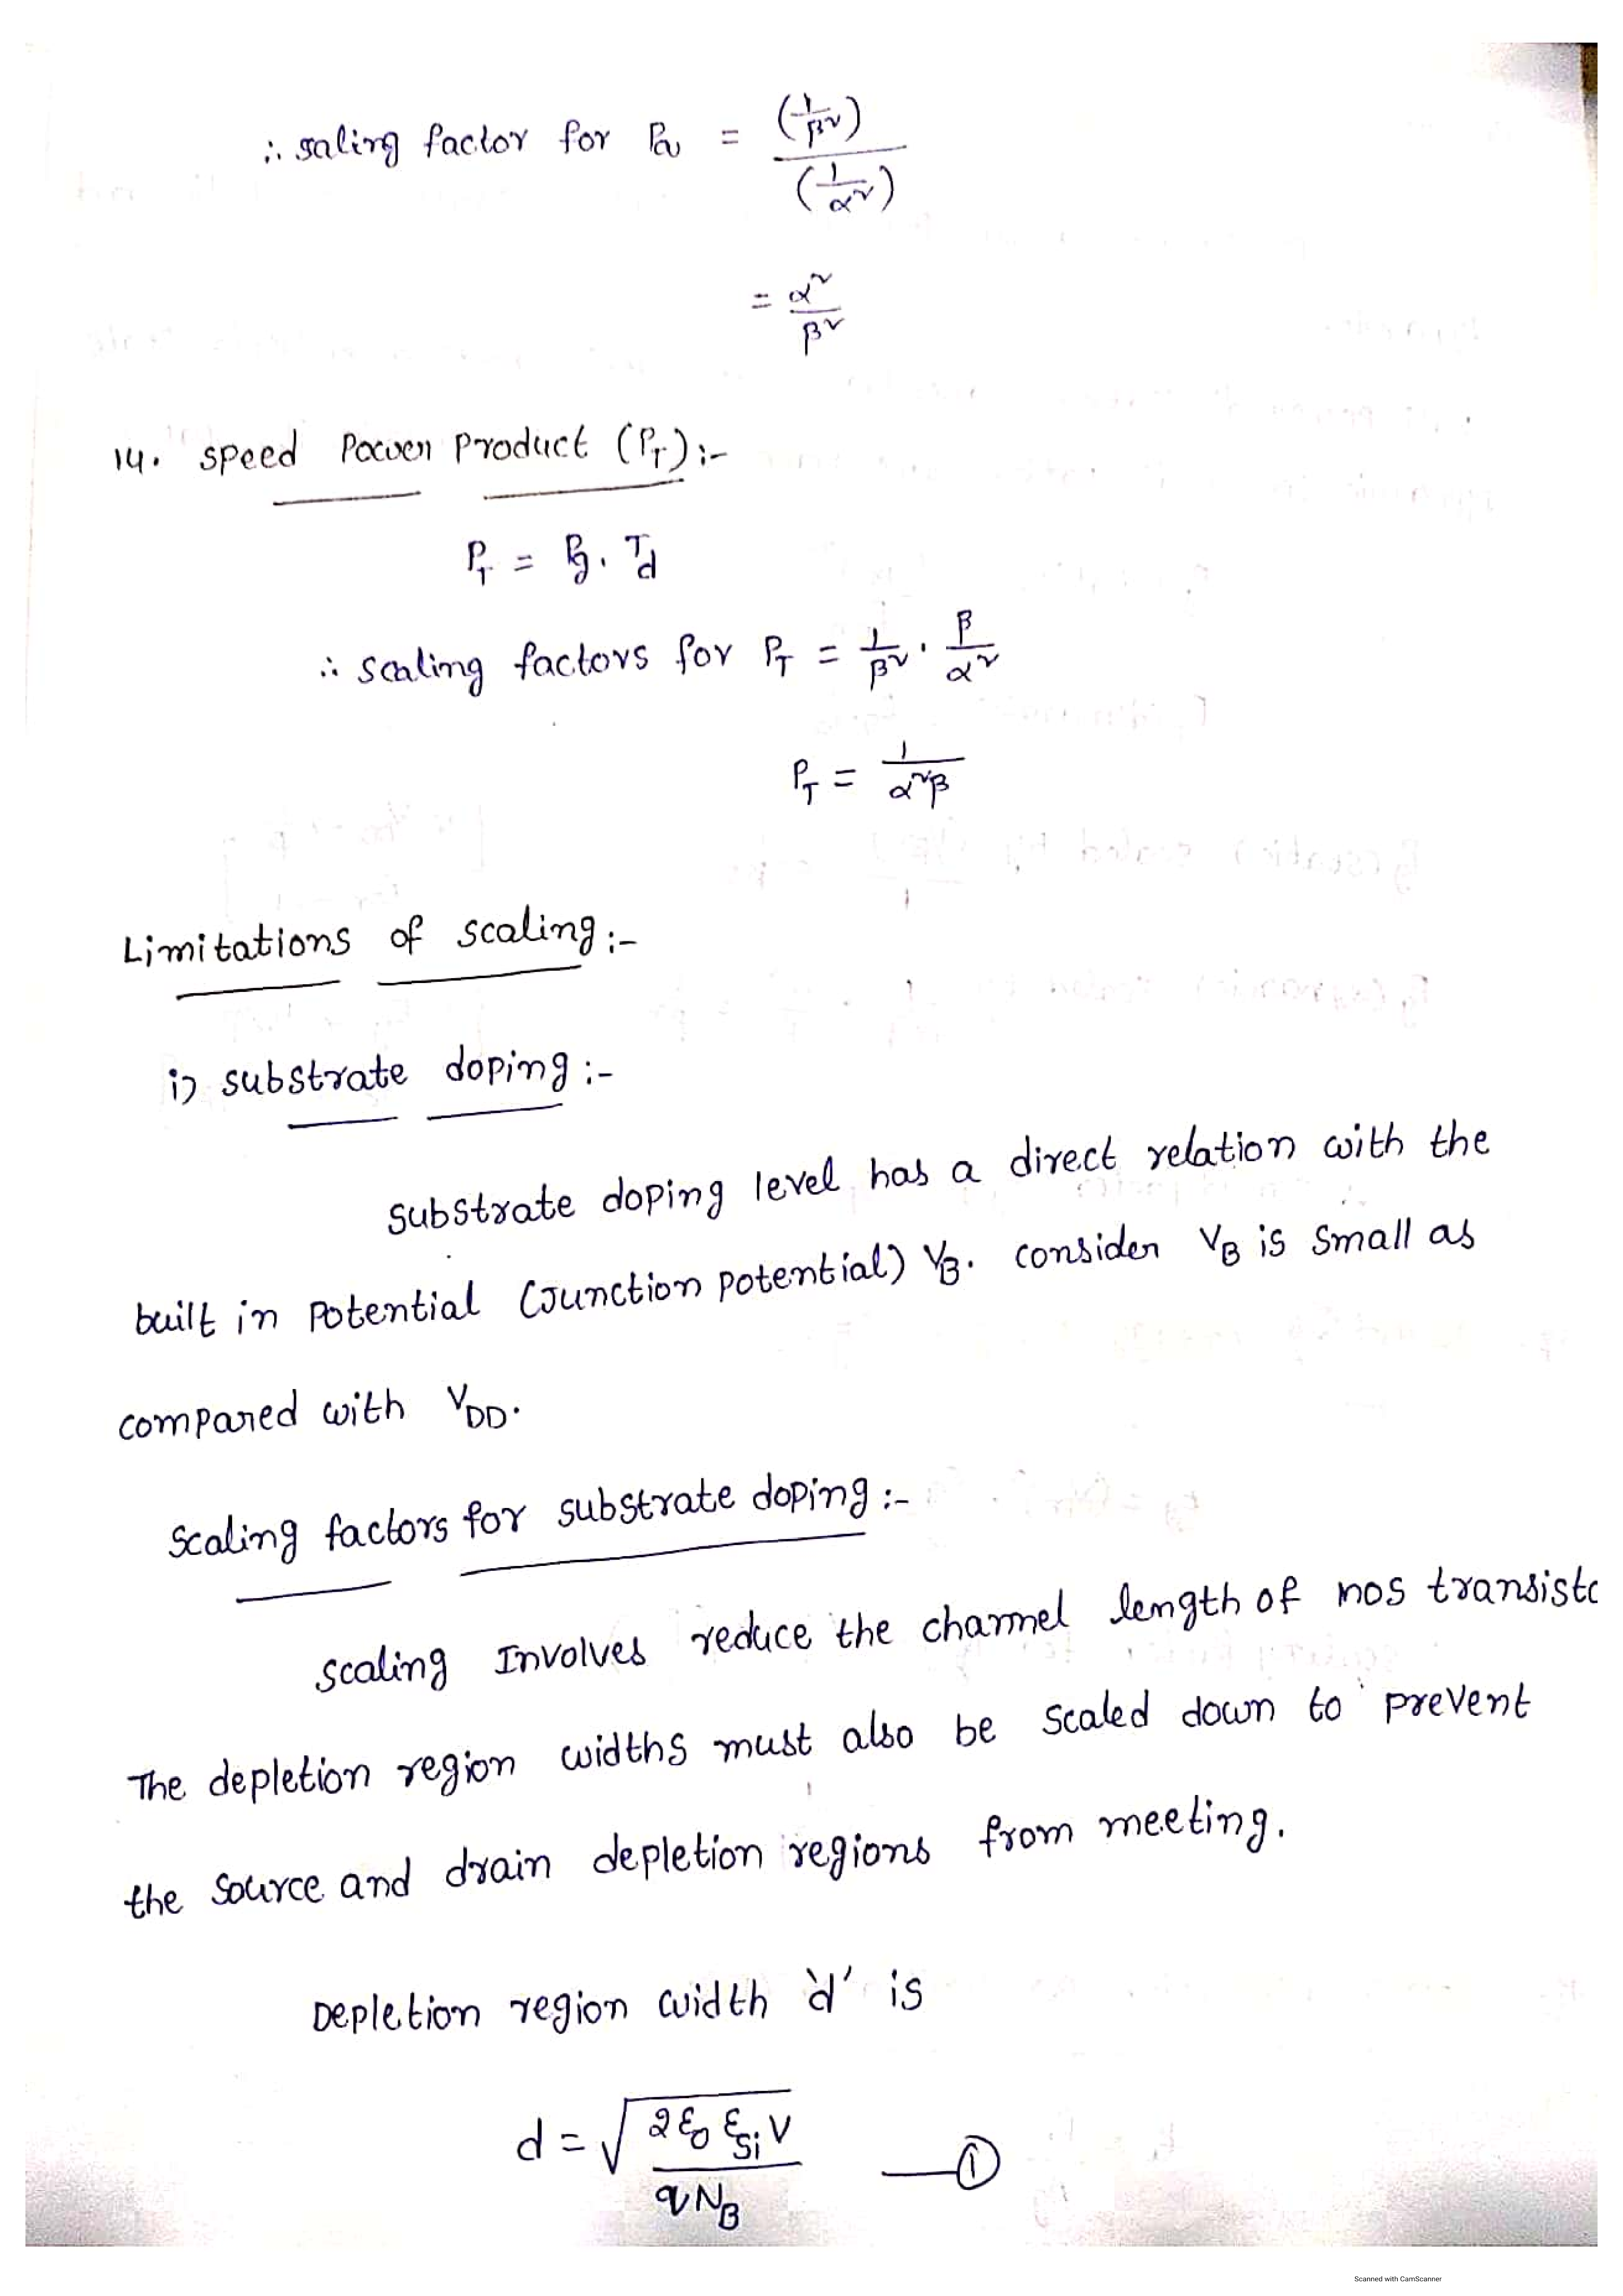 ∴ saling factor for Pa = (1/β²) / (1/α²)
= α²/β²
14. Speed Power Product (P_T):-
P_T = Pg . Td
∴ scaling factors for P_T = 1/β² . β/α²
P_T = 1/α²β
Limitations of scaling:-
i) substrate doping:-
substrate doping level has a direct relation with the
built in potential (Junction potential) V_B. consider V_B is small as
compared with V_DD.
Scaling factors for substrate doping:-
scaling Involves reduce the channel length of mos transisto
The depletion region widths must also be scaled down to prevent
the source and drain depletion regions from meeting.
Depletion region width 'd' is
d = √(2ε₀ ε_Si V / qN_B) —①
Scanned with CamScanner